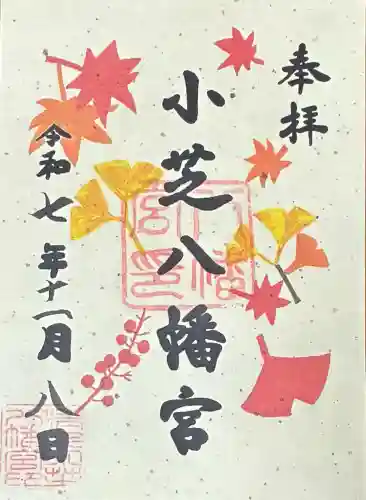 奉拝
小芝八幡宮
令和七年十一月八日